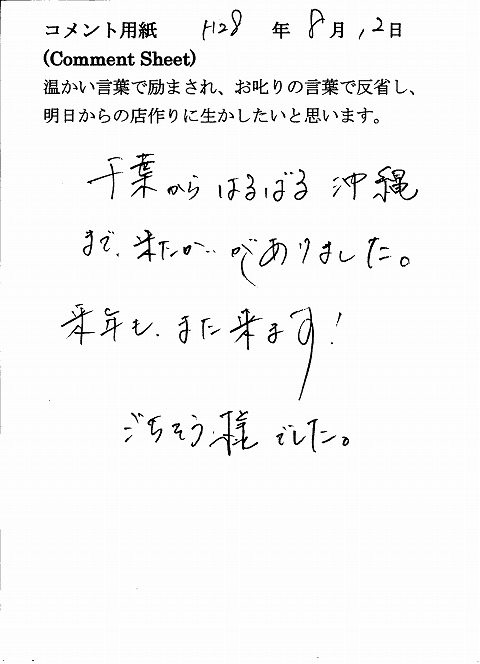 コメント用紙 H28 年 8月12日
(Comment Sheet)
温かい言葉で励まされ、お叱りの言葉で反省し、
明日からの店作りに生かしたいと思います。
千葉からはるばる沖縄
まで、来たかいがありました。
来年も、また来ます!
ごちそう様でした。